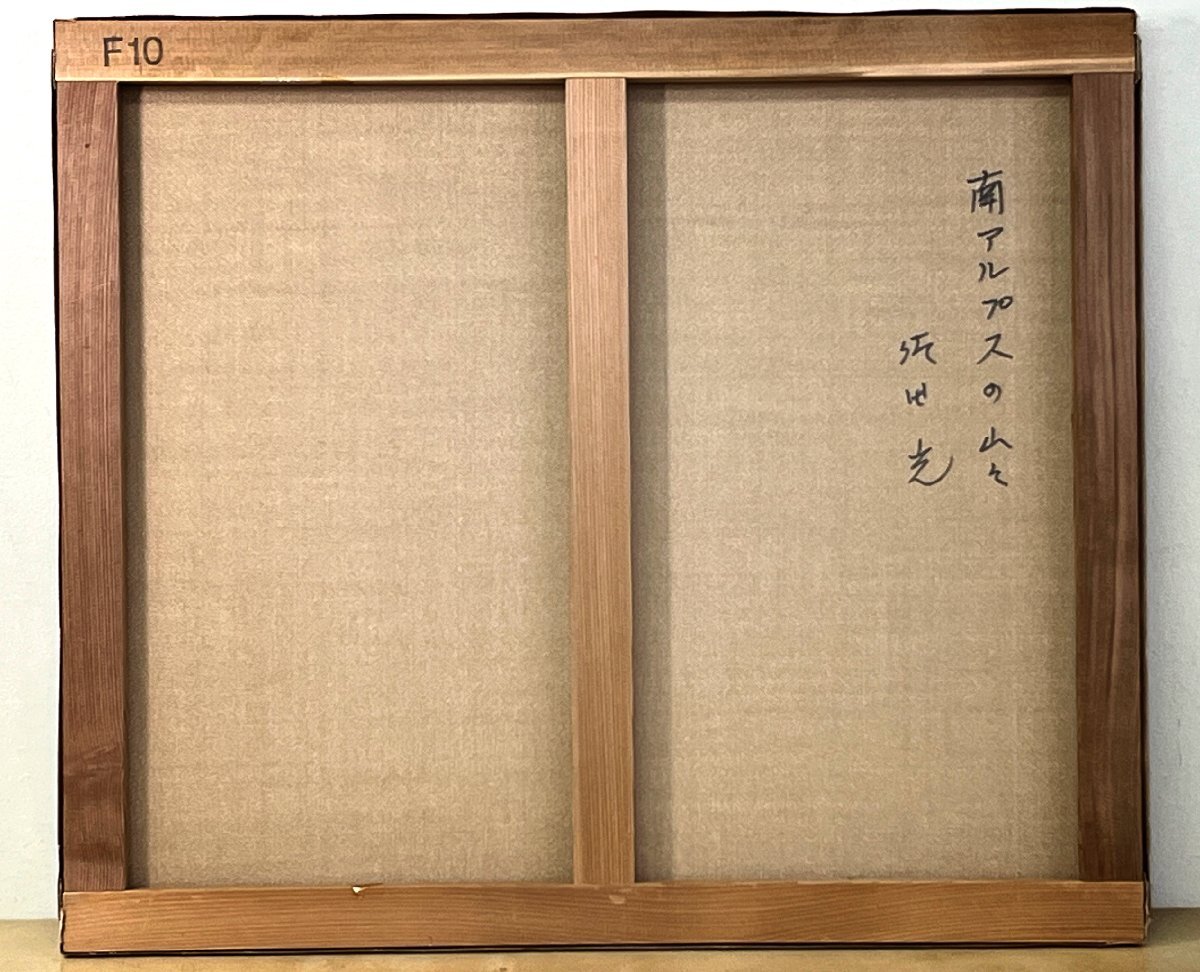 F10
南アルプスの山々
田 光